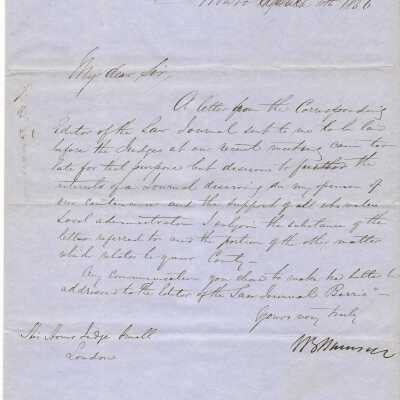 April 11th 1856
My dear Sir,
A letter from the Corresponding
Editor of the Law Journal sent to me to be laid
before the Judges at our recent meeting came too
late for that purpose but desirous to further the
interests of a Journal deserving in my opinion of
our continuance and the support of all who value
Local administration I subjoin the substance of the
letter referred to and the portion of the other matter
which relates to your County —
Any communication you choose to make had better be
addressed to the Editor of the Law Journal Barrie" —
Yours very truly
His Honor Judge Small
London